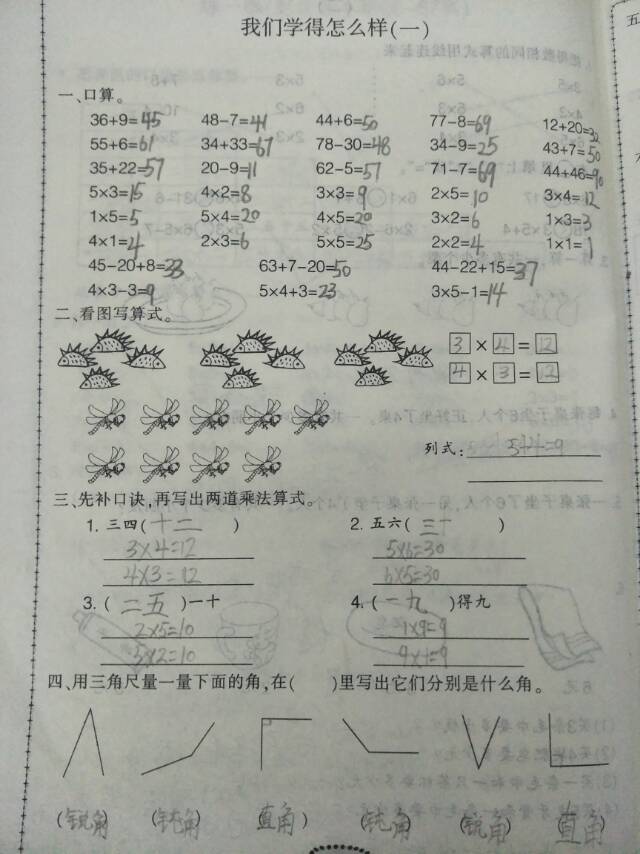 我们学得怎么样(一)
一、口算。
36+9=45 48-7=41 44+6=50 77-8=69 12+20=32
55+6=61 34+33=67 78-30=48 34-9=25 43+7=50
35+22=57 20-9=11 62-5=57 71-7=69 44+46=90
5×3=15 4×2=8 3×3=9 2×5=10 3×4=12
1×5=5 5×4=20 4×5=20 3×2=6 1×3=3
4×1=4 2×3=6 5×5=25 2×2=4 1×1=1
45-20+8=33 63+7-20=50 44-22+15=37
4×3-3=9 5×4+3=23 3×5-1=14
二、看图写算式。
3×4=12
4×3=12
列式: 5+4=9
三、先补口诀,再写出两道乘法算式。
1. 三四(十二) 2. 五六(三十)
3×4=12 5×6=30
4×3=12 6×5=30
3. (二五)一十 4. (一九)得九
2×5=10 1×9=9
5×2=10 9×1=9
四、用三角尺量一量下面的角,在( )里写出它们分别是什么角。
(锐角) (钝角) 直角) (钝角) (锐角) (直角)